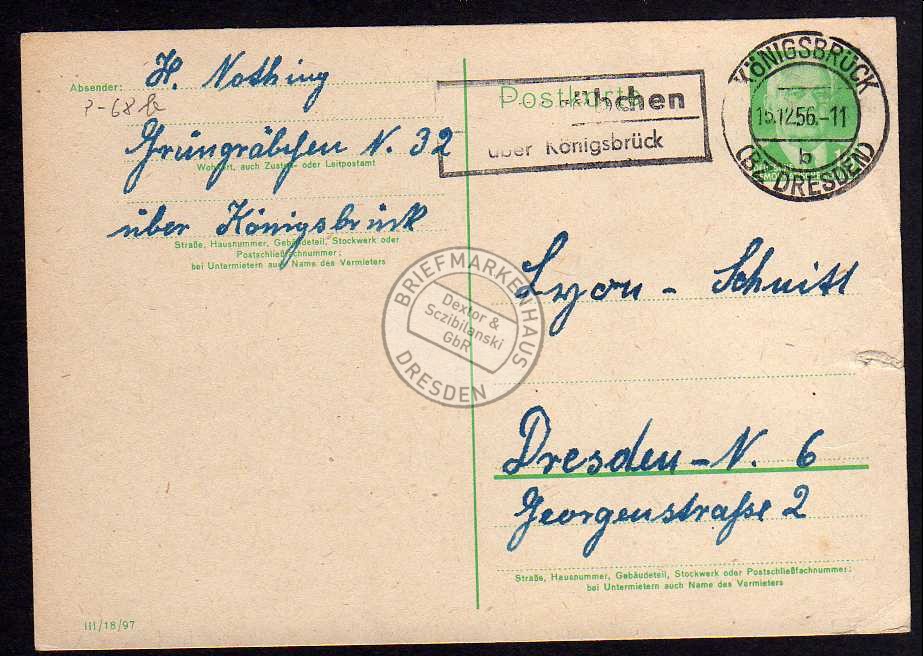 Absender: H. Nothing
Grüngräbchen N. 32
Wohnort, auch Zustell- oder Leitpostamt
über Königsbrück
Straße, Hausnummer, Gebäudeteil, Stockwerk oder
Postschließfachnummer;
bei Untermietern auch Name des Vermieters
III/18/97
Postkarte
über Königsbrück
KÖNIGSBRÜCK
15.12.56.-11
b
(BZ DRESDEN)
Lyon - Schnitt
Dresden-N. 6
Georgenstraße 2
Straße, Hausnummer, Gebäudeteil, Stockwerk oder Postschließfachnummer;
bei Untermietern auch Name des Vermieters
BRIEFMARKENHAUS
Dextor &
Sczibilanski
GbR
DRESDEN